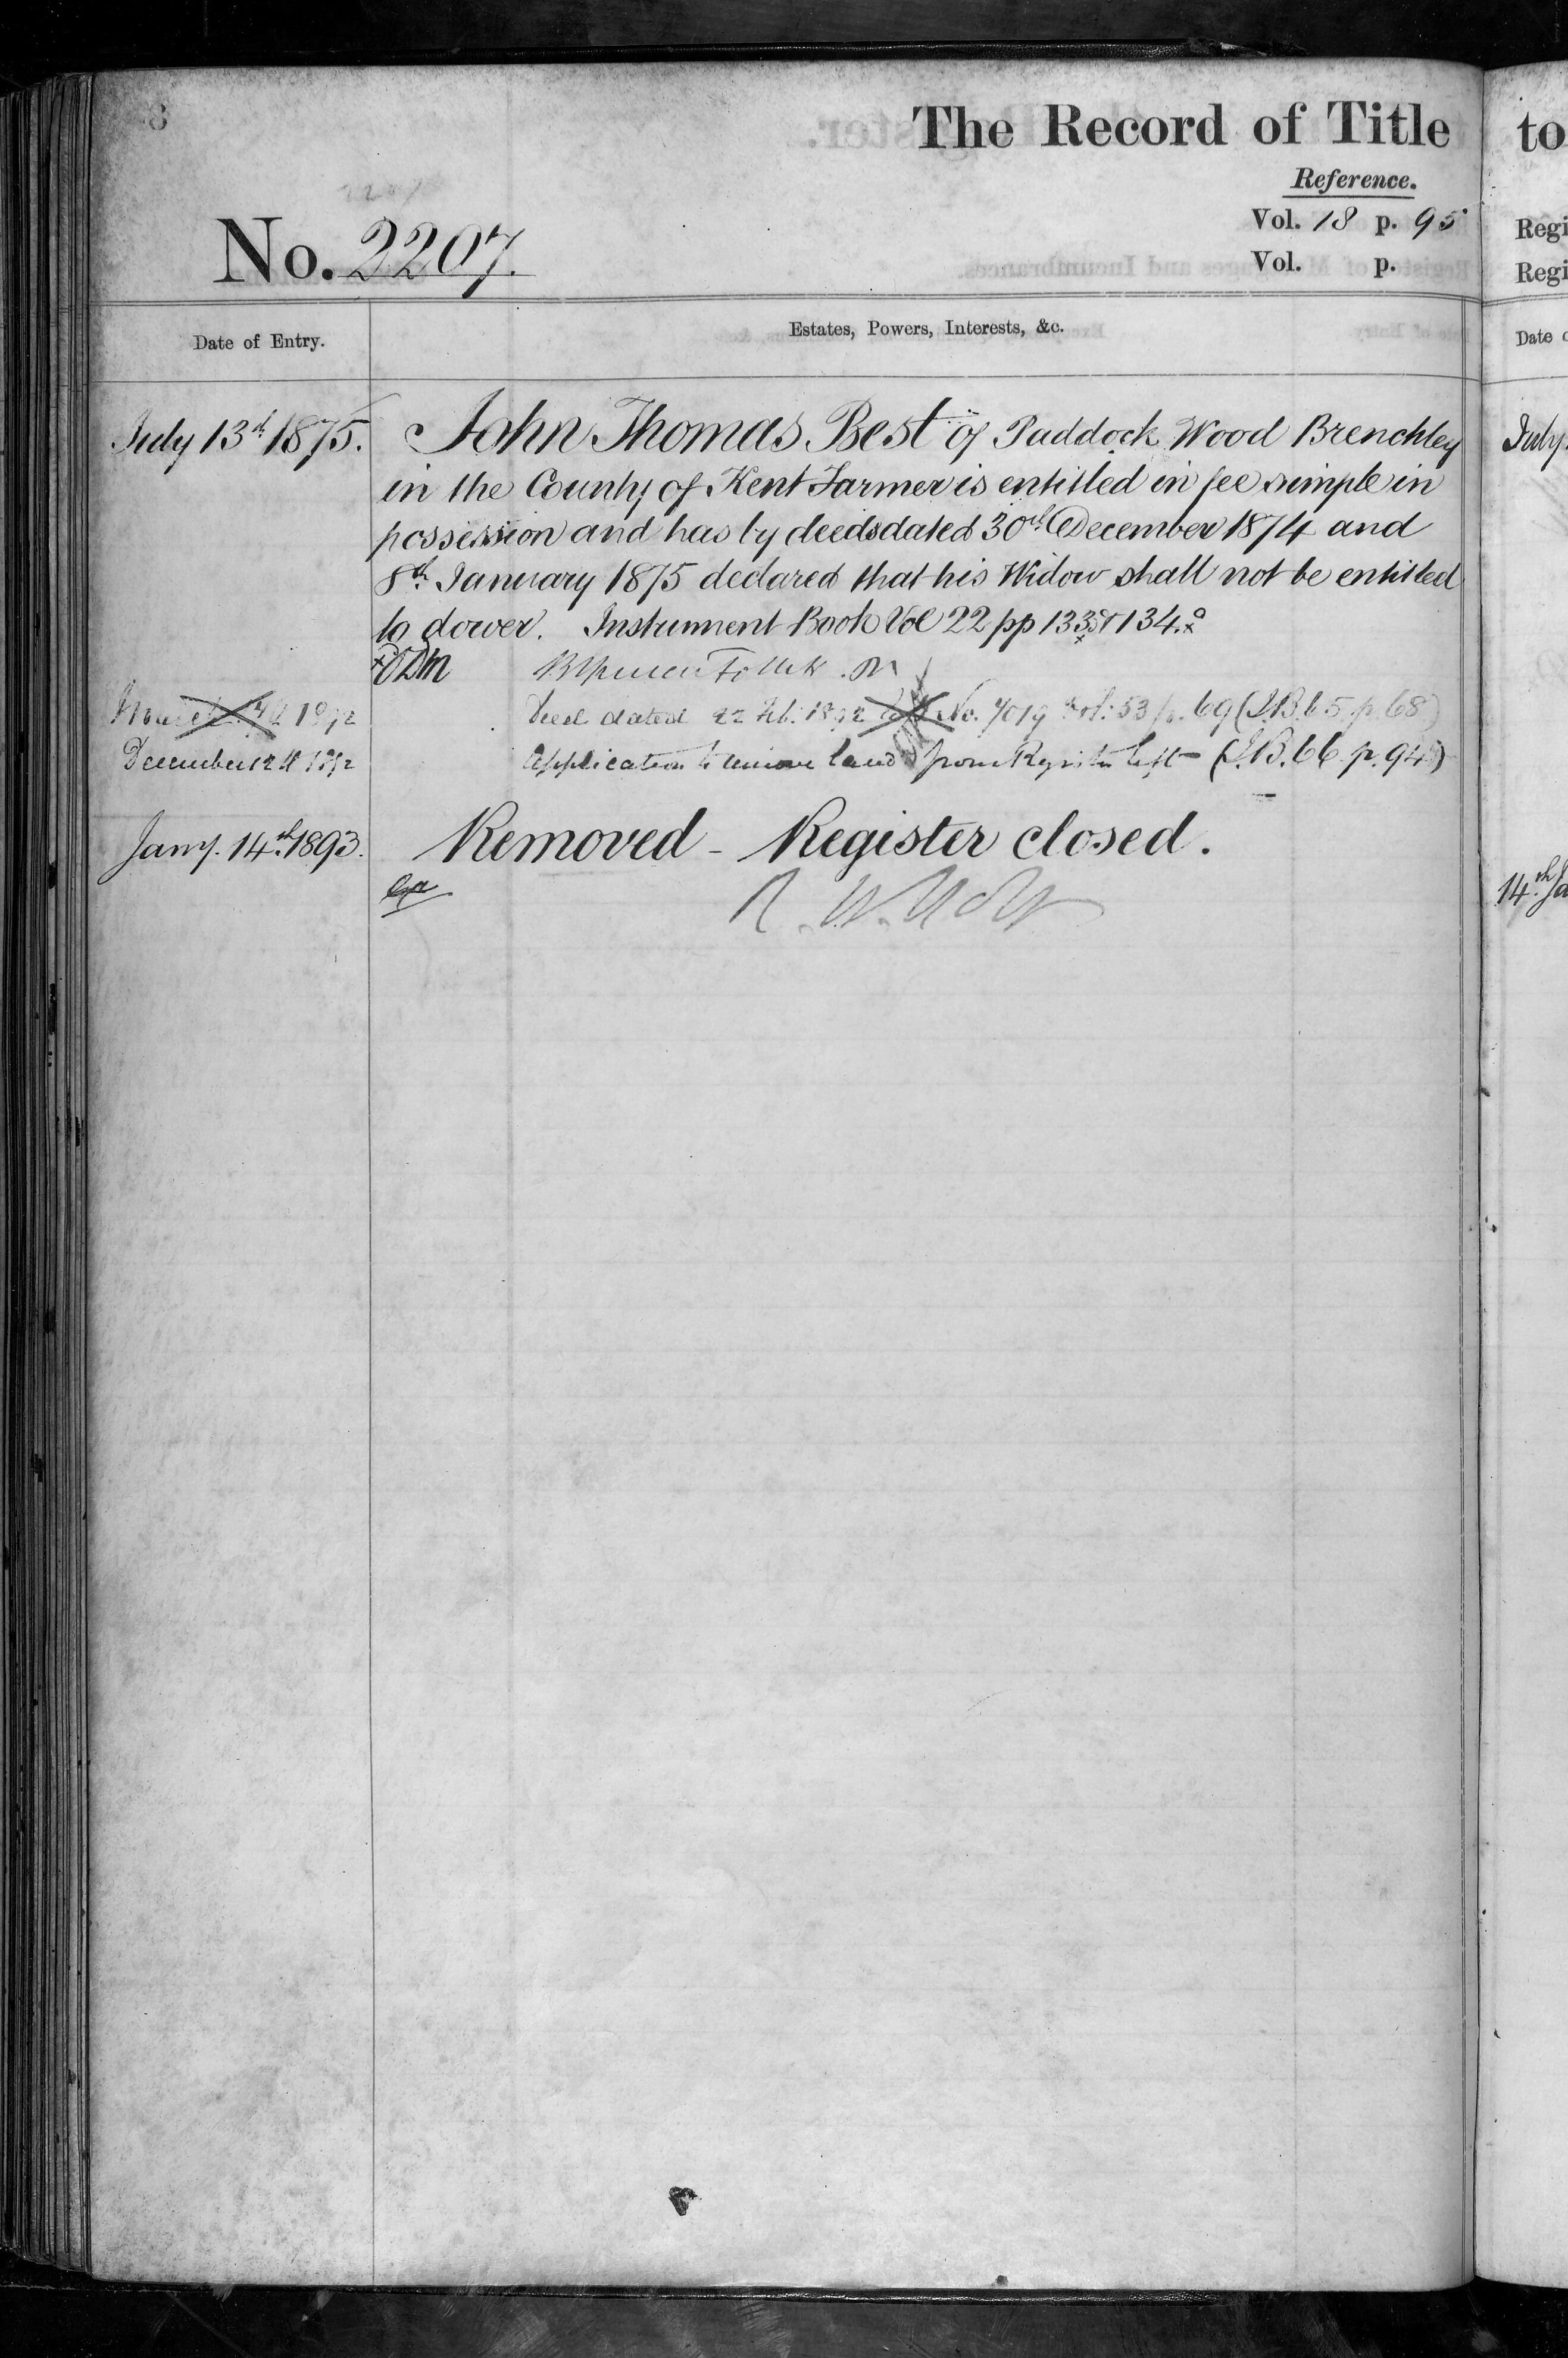 8
The Record of Title
Reference.
Vol. 18 p. 95
No. 2207.
Vol. p.
Date of Entry.
Estates, Powers, Interests, &c.
July 13th 1875. John Thomas Best of Paddock Wood Brenchley
in the County of Kent Farmer is entitled in fee simple in
possession and has by deeds dated 30th December 1874 and
8th January 1875 declared that his Widow shall not be entitled
to dower. Instrument Book Vol 22 pp 133 & 134.
March 1892 Deed dated 22 Feb. 1892 No. 7019 Vol. 53 p. 69 (I.B. 65 p. 68)
December 1892 Application to remove land from Register left - (I.B. 66 p. 94)
Jany. 14th 1893. Removed - Register closed.
to
Regi
Regi
Date o
July
14th Ja